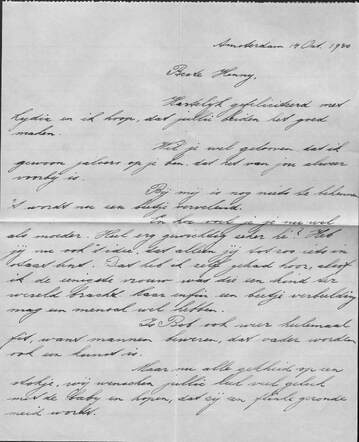 Amsterdam 14 Oct. 1920
Beste Henny,
Hartelijk gefeliciteerd met
Lydia en ik hoop, dat jullie beiden het goed
maken.
Wil je wel gelooven dat ik
gewoon jaloers op je ben, dat het van jou alweer
voorbij is.
Bij mij is nog niets te bekennen
't wordt nu een beetje vervelend.
En hoe voel je je nu wel
als moeder. Heel erg gewichtig zeker hè? Heb
jij nu ook 't idee, dat alleen jij tot zoo iets in
staat bent. Dat heb ik zelf gehad hoor, alsof
ik de eenigste vrouw was die een kind ter
wereld bracht maar enfin een beetje verbeelding
mag een mensch wel hebben.
Is Bob ook weer helemaal
fit, want mannen beweren, dat vader worden
ook een kunst is.
Maar nu alle gekheid op een
stokje, wij wenschen jullie heel veel geluk
met de baby en hopen, dat zij een flinke gezonde
meid wordt.